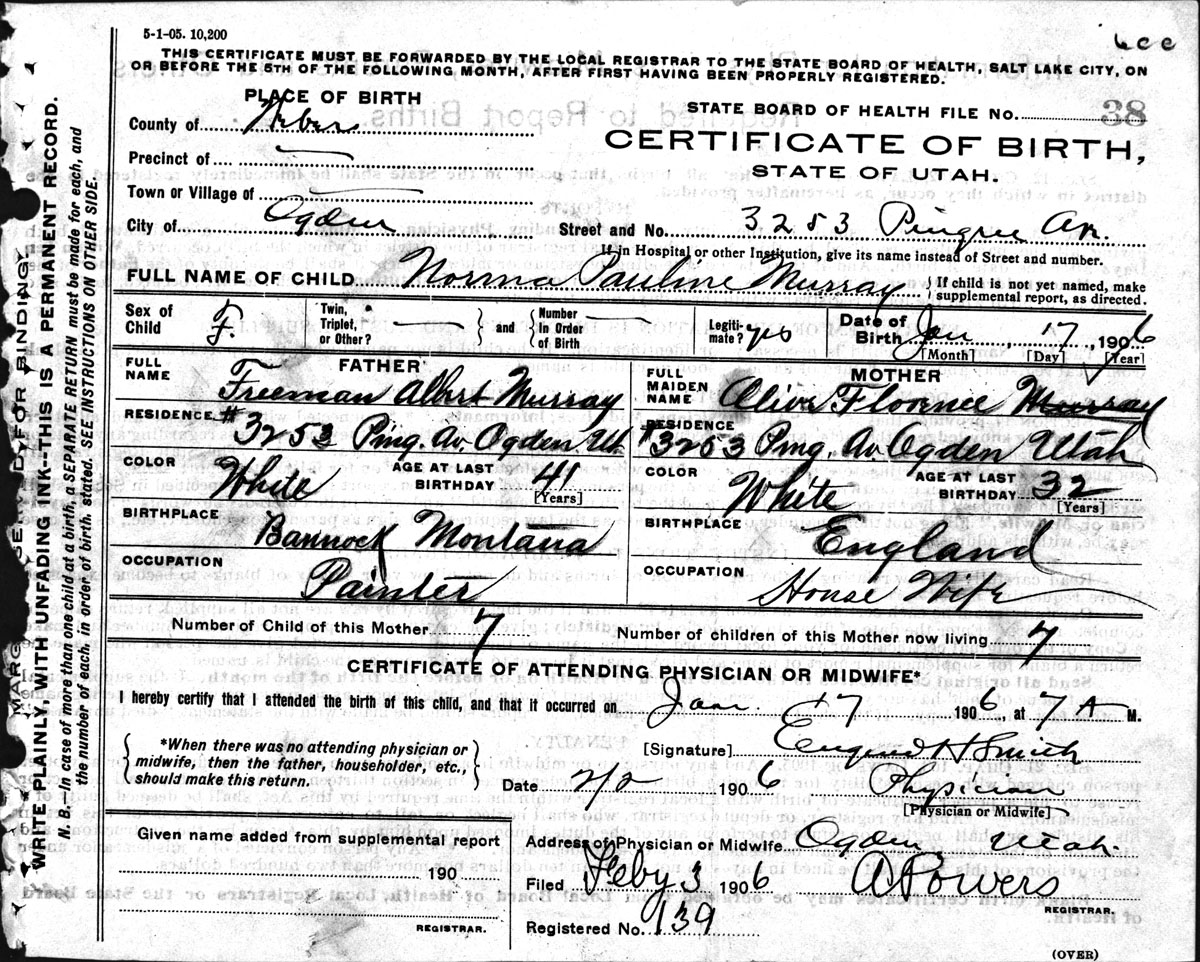 5-1-05. 10,200
6cc
THIS CERTIFICATE MUST BE FORWARDED BY THE LOCAL REGISTRAR TO THE STATE BOARD OF HEALTH, SALT LAKE CITY, ON
OR BEFORE THE 5TH OF THE FOLLOWING MONTH, AFTER FIRST HAVING BEEN PROPERLY REGISTERED.
PLACE OF BIRTH
STATE BOARD OF HEALTH FILE NO. 38
County of Weber
CERTIFICATE OF BIRTH,
Precinct of
STATE OF UTAH.
Town or Village of
City of Ogden Street and No. 3253 Pingree Av.
If in Hospital or other Institution, give its name instead of Street and number.
FULL NAME OF CHILD Norma Pauline Murray
If child is not yet named, make
supplemental report, as directed.
Sex of
Child F.
Twin,
Triplet,
or Other?
and
Number
In Order
of Birth
Legiti-
mate? yes
Date of
Birth Jan 17, 1906
[Month] [Day] [Year]
FATHER
FULL
NAME Freeman Albert Murray
RESIDENCE #3253 Ping. Av. Ogden Ut.
COLOR White AGE AT LAST
BIRTHDAY 41
[Years]
BIRTHPLACE Bannock Montana
OCCUPATION Painter
MOTHER
FULL
MAIDEN
NAME Olive Florence Murray
RESIDENCE #3253 Ping. Av. Ogden Utah
COLOR White AGE AT LAST
BIRTHDAY 32
[Years]
BIRTHPLACE England
OCCUPATION House Wife
Number of Child of this Mother 7 Number of children of this Mother now living 7
CERTIFICATE OF ATTENDING PHYSICIAN OR MIDWIFE*
I hereby certify that I attended the birth of this child, and that it occurred on Jan. 17 1906, at 7 A M.
*When there was no attending physician or
midwife, then the father, householder, etc.,
should make this return.
[Signature] Eugene H Smith
Date 2/2 1906 Physician
[Physician or Midwife]
Given name added from supplemental report
190
REGISTRAR.
Address of Physician or Midwife Ogden Utah.
Filed Feby 3 1906 A Powers
REGISTRAR.
Registered No. 139
(OVER)
MARGIN RESERVED FOR BINDING
WRITE PLAINLY, WITH UNFADING INK--THIS IS A PERMANENT RECORD.
N. B.—In case of more than one child at a birth, a SEPARATE RETURN must be made for each, and
the number of each, in order of birth, stated. SEE INSTRUCTIONS ON OTHER SIDE.